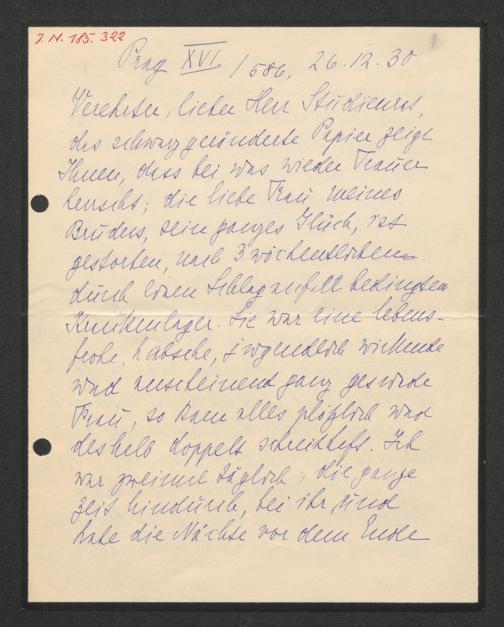 J. N. 185.322
Prag XVI / 586, 26.12.30
Verehrter, lieber Herr Studienrat,
das schwarzgeränderte Papier zeigt
Ihnen, dass bei uns wieder Trauer
herrscht; die liebe Frau meines
Bruders, sein ganzes Glück, ist
gestorben, nach 3 wöchentlichen
durch einen Schlaganfall bedingten
Krankenlager. Sie war eine lebens-
frohe, hübsche, jugendlich wirkende
und anscheinend ganz gesunde
Frau, so kam alles plötzlich und
deshalb doppelt schreckhaft. Ich
war zweimal täglich, die ganze
Zeit hindurch, bei ihr und
habe die Nächte vor dem Ende